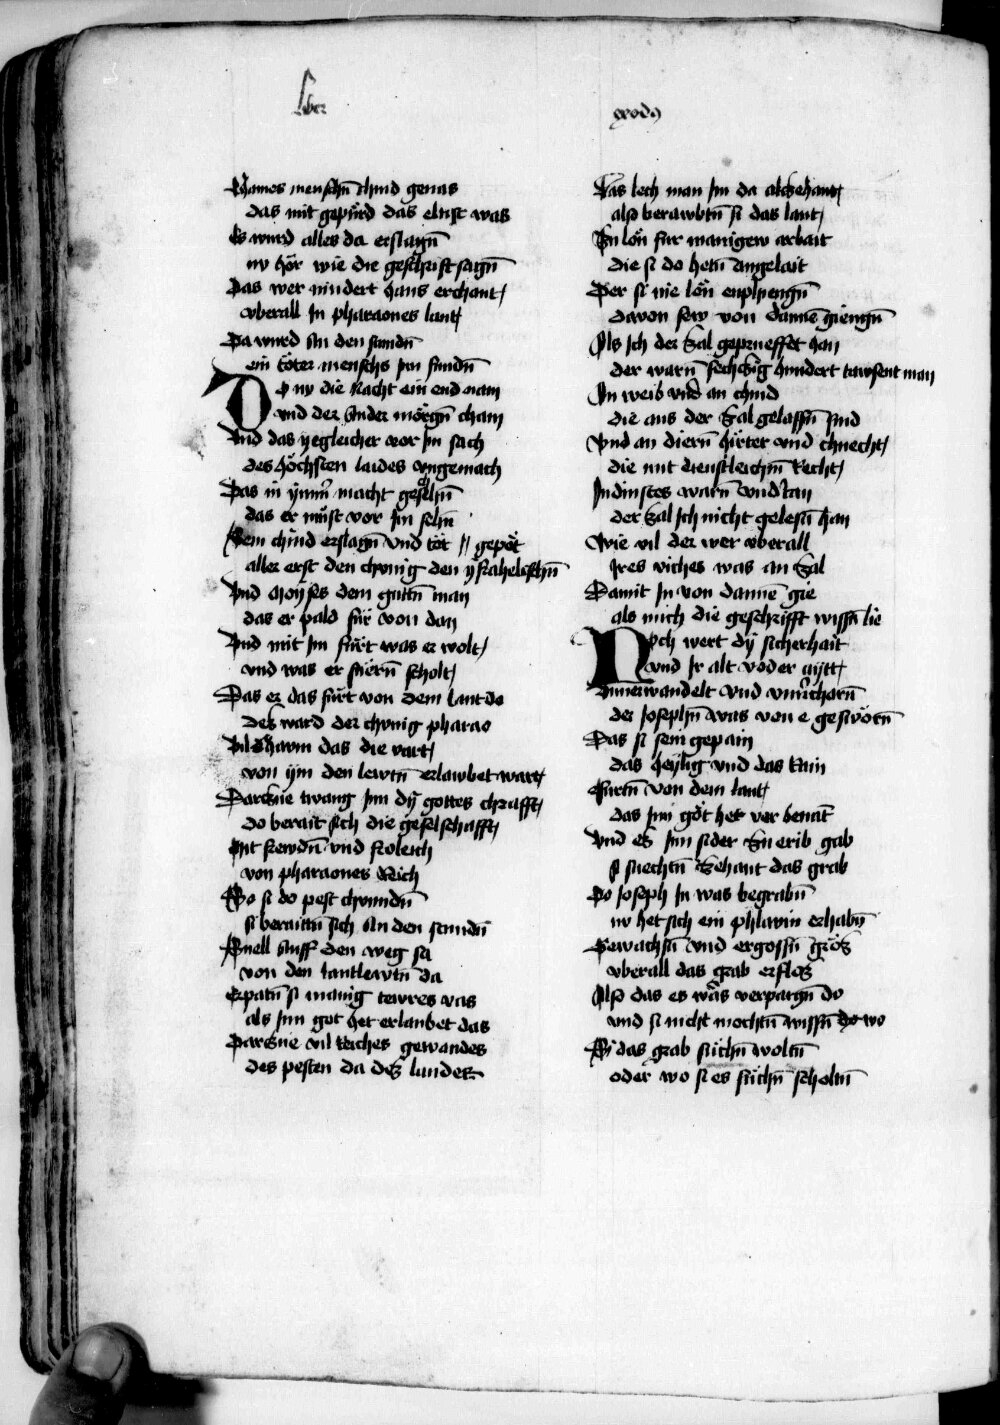 liber
exodꝯ
Chames menschñ chind genas
das mit gepürd das eltist was
Es wurd alles da erslagñ
nv hör wie die geschrift sagñ
Das wer nindert haus erchant
vberall In pharaones lant
Da wurd An den stundñ
ein töter menschs Inn fundñ
Do nv die Nacht ein end nam
vnd der Ander mörgñ cham
Vnd das yegleicher vor Im sach
des höchsten laides vngemach
Das in ymmˀ macht geschehñ
das er müst vor Im sehñ
Sein chind erslagñ vnd töt // gepöt
aller erst den chvnig den yſrahelischñ
Vnd Moyses dem gutñ man
das er pald für von dan
Vnd mit Im fürt was er wolt
vnd was er füern scholt
Das er das fürt von dem lant do
des ward der chvnig pharao
von ym den lewtñ erlawbet wart
Darczue twang Inn dy gottes chrafft
do berait sich die geselschafft
Mit frewdñ vnd froleich
von pharaones Reich
So si do pest chvnndñ
si beraittñ sich An den stundñ
Snell Auff den weg sa
von den lantlewtñ da
Erpatñ si manig tewres vas
als Inn got het erlaubet das
Darczue vil Reiches gewandes
des pesten da dez landes
Das lech man Im da alczehant
also berawbtñ si das lant
Zu lön für manigew arbait
die si do hetñ Angelait
Der si nie lön enphiengñ
davon sew von dannē giengñ
Als Ich der Zal geprueffet han
der warñ sechczig hundert tawsent man
An weib vnd an chind
die aus der Zal gelassñ sind
Vnd an diernñ hirter vnd chnecht
die mit dienstleichm Recht
Indinstes warñ vnd tan
der Zal Ich nicht gelesñ han
Wie vil der wer vberall
Ires viches was an Zal
Damit In von dannē gie
als mich die geschrifft wissñ lie
Noch wert dy sicherhait
vnd Ir alt voder aytt
Vnuerwandelt vnd vnuˀcharñ
der Josephñ was von e geswörñ
Das si sein gepain
das heylig vnd das Rain
Fürtñ von dem lant
das Im got het vor benāt
Vnd es Im sider Zu erib gab
si suechtñ Zehant das grab
Do Joseph In was begrabñ
nv het sich ein phlawm erhabñ
Gewachsñ vnd ergossñ gröz
vberall das grab erfloz
Also das es was verpargñ do
vnd si nicht mochtñ wissñ do wo
Si das grab süchñ woltñ
oder wo si es süchñ scholtñ